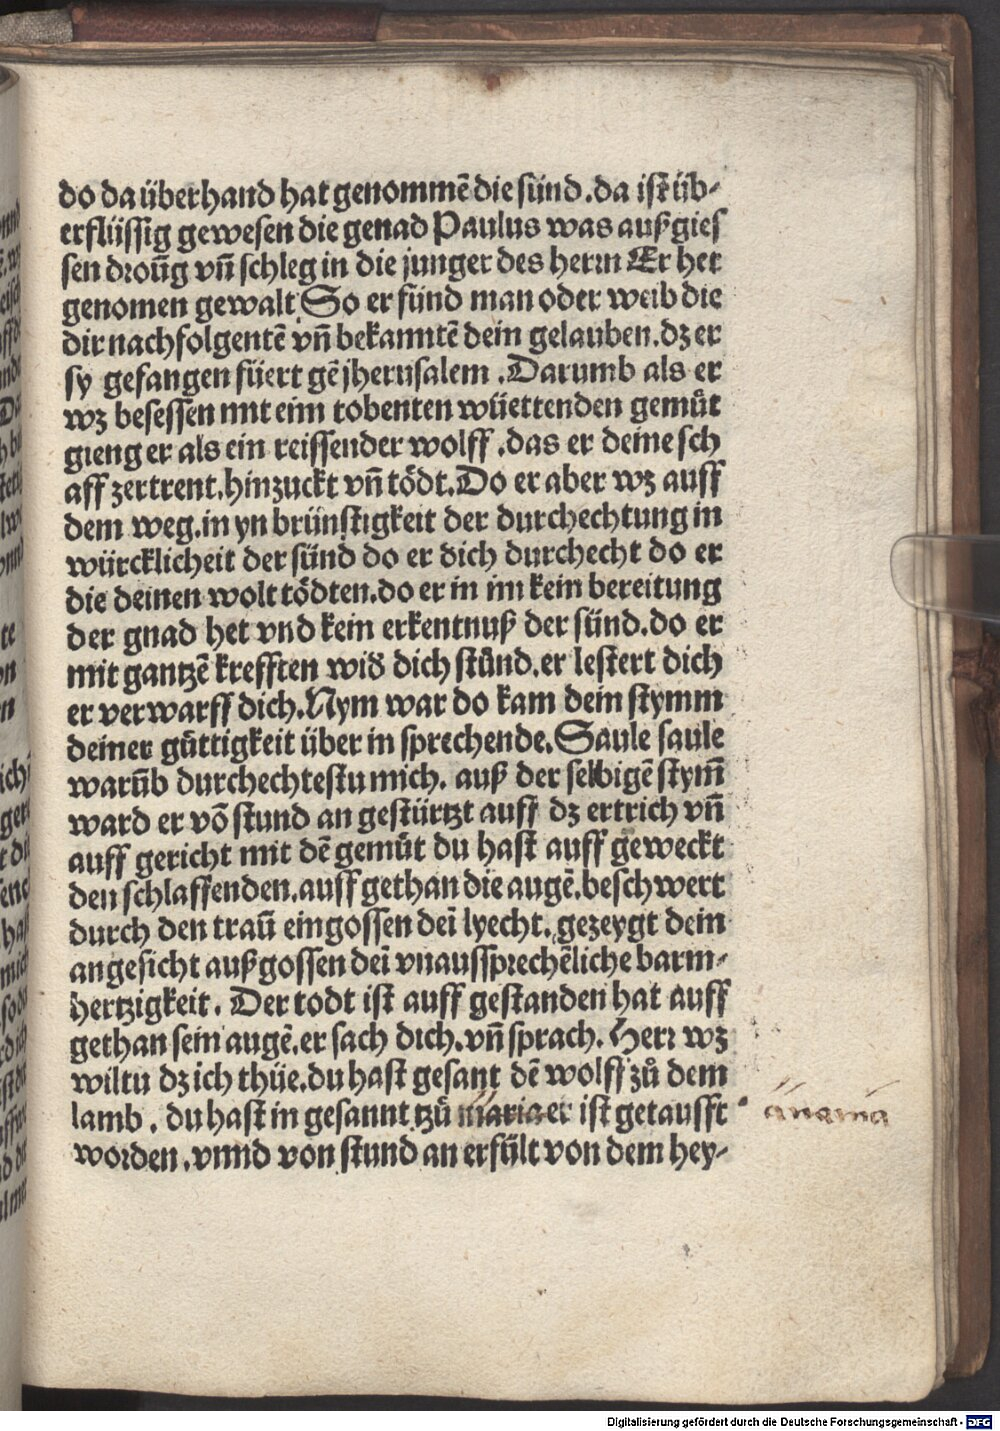 do da überhand hat genommē die sünd. da ist üb-
erflüssig gewesen die genad Paulus was außgies
sen droūg vn̄ schleg in die junger des herrn Er het
genomen gewalt So er fünd man oder weib die
dir nachfolgentē vn̄ bekanntē dein gelauben. dz er
sy gefangen füert gē jherusalem. Darumb als er
wz besessen mit eim tobenten wüettenden gemůt
gieng er als ein reissender wolff. das er deine sch
aff zertrent. hinzuckt vn̄ tödt. Do er aber wz auff
dem weg. in yn brünstigkeit der durchechtung in
würcklicheit der sünd do er dich durchecht do er
die deinen wolt tödten. do er in im kein bereitung
der gnad het vnd kein erkentnuß der sünd. do er
mit gantzē krefften wid̕ dich stůnd. er lestert dich
er verwarff dich. Nym war do kam dein stymm
deiner güttigkeit über in sprechende. Saule saule
warūb durchechtestu mich. auß der selbigē stym̄
ward er vō stund an gestürtzt auff dz ertrich vn̄
auff gericht mit dē gemůt du hast auff geweckt
den schlaffenden. auff gethan die augē. beschwert
durch den traū eingossen dei̅ lyecht. gezeygt dein
angesicht außgossen dei̅ vnaussprechēliche barm-
hertzigkeit. Der todt ist auff gestanden hat auff
gethan sein augē. er sach dich. vn̄ sprach. Herr wz
wiltu dz ich thüe. du hast gesant dē wolff zů dem
lamb. du hast in gesannt tzů maria er ist getaufft
worden. vnnd von stund an erfült von dem hey-
anania
Digitalisierung gefördert durch die Deutsche Forschungsgemeinschaft - DFG